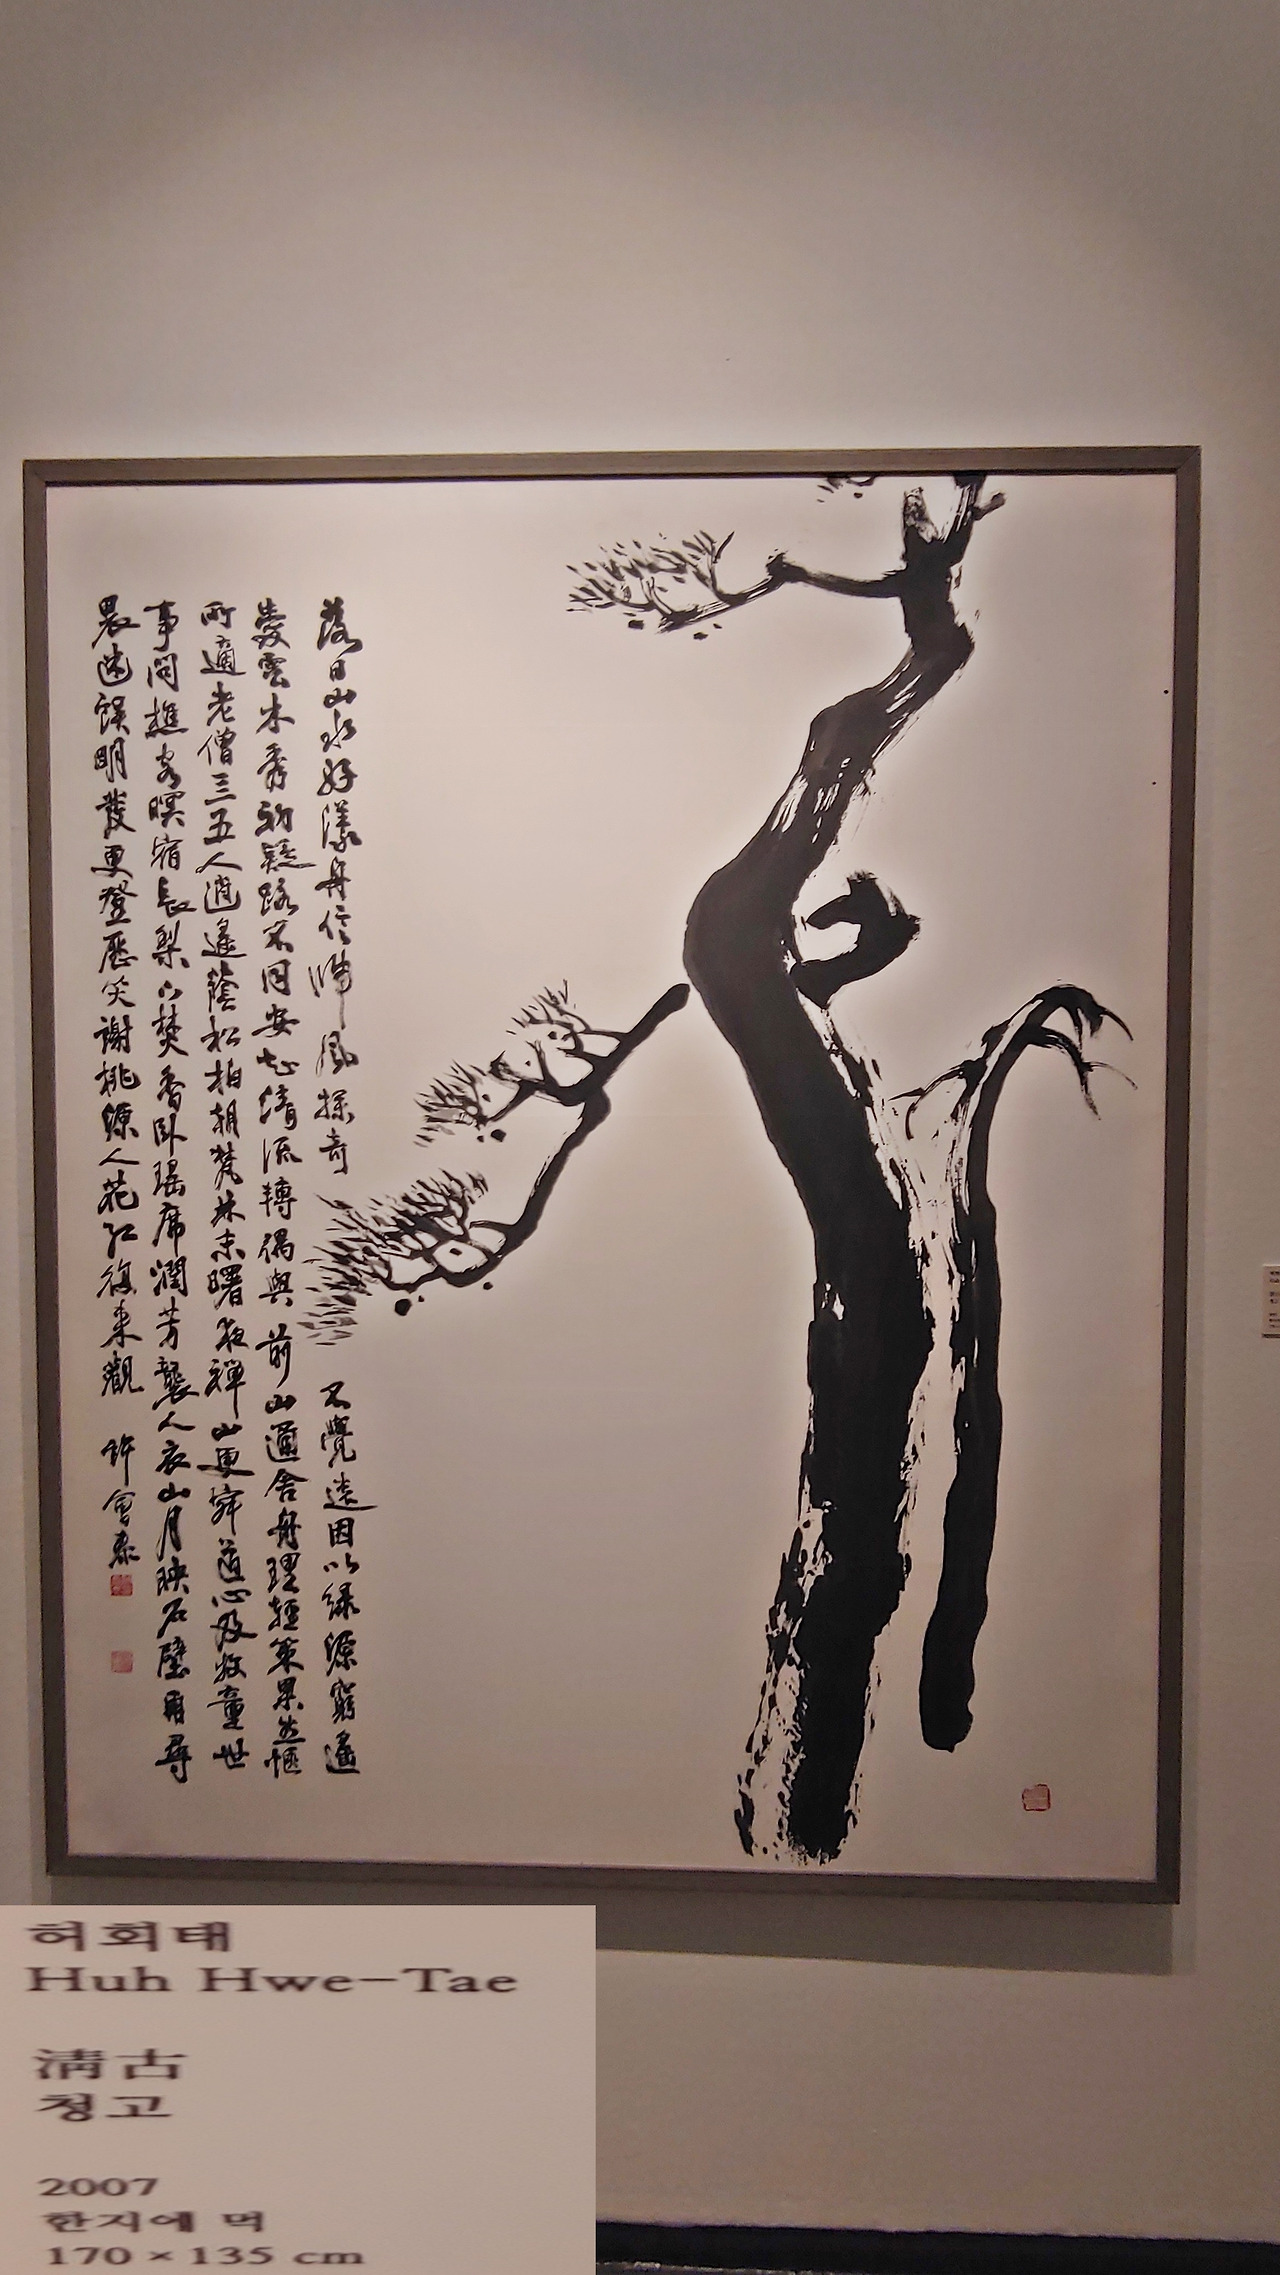 落日山水好漾舟信歸風探奇不覺遠因以緣源窮遙
愛雲木秀初疑路不同安知清流轉偶與前山通舍舟理輕策果然愜
所適老僧三五人逍遙蔭松柏朝梵林未曙夜禪山更寂道心及牧童世
事問樵客暝宿長梨下焚香臥瑤席澗芳襲人衣山月映石壁再尋
畏迷誤明發更登歷笑謝桃源人花紅復來觀 許會泰
허회태
Huh Hwe-Tae
淸古
청고
2007
한지에 먹
170 × 135 cm